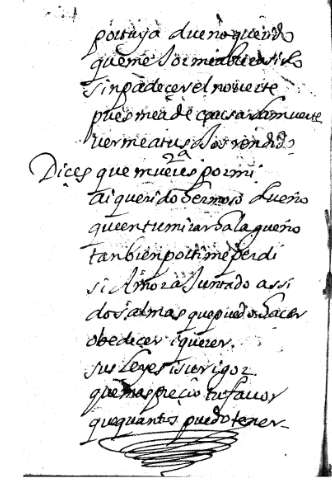 por tuya dueño querido
que me
sin padecer el no verte
pues me a de causar la muerte
verme a tus ojos rendido
2a
Dices que mueres por mi
ai querido hermoso dueño
que en tu mirar halagueño
tanbien por ti me perdi
si Amor a Juntado assi
dos almas que pueden hacer
obedecer i querer
sus leyes i su rigor
que mas precio tu favor
que quantos puedo tener